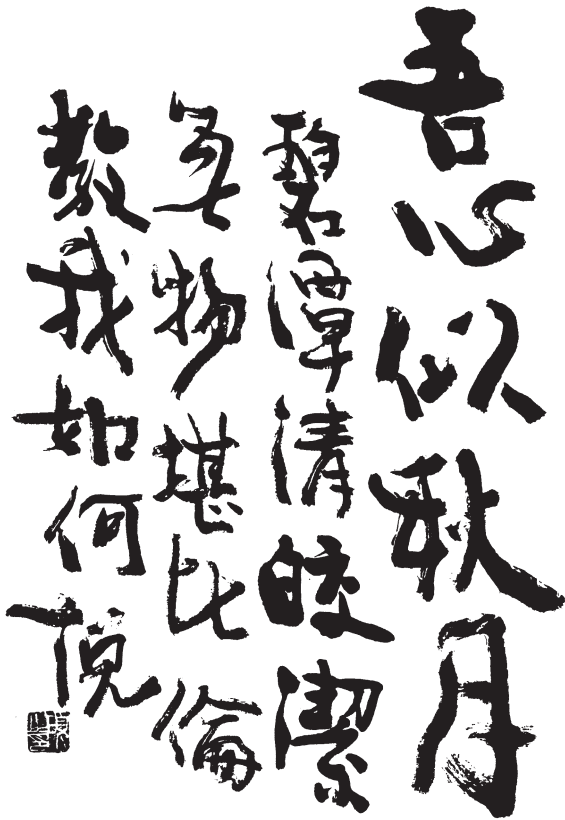 吾心似秋月
碧潭清皎潔
無物堪比倫
教我如何説